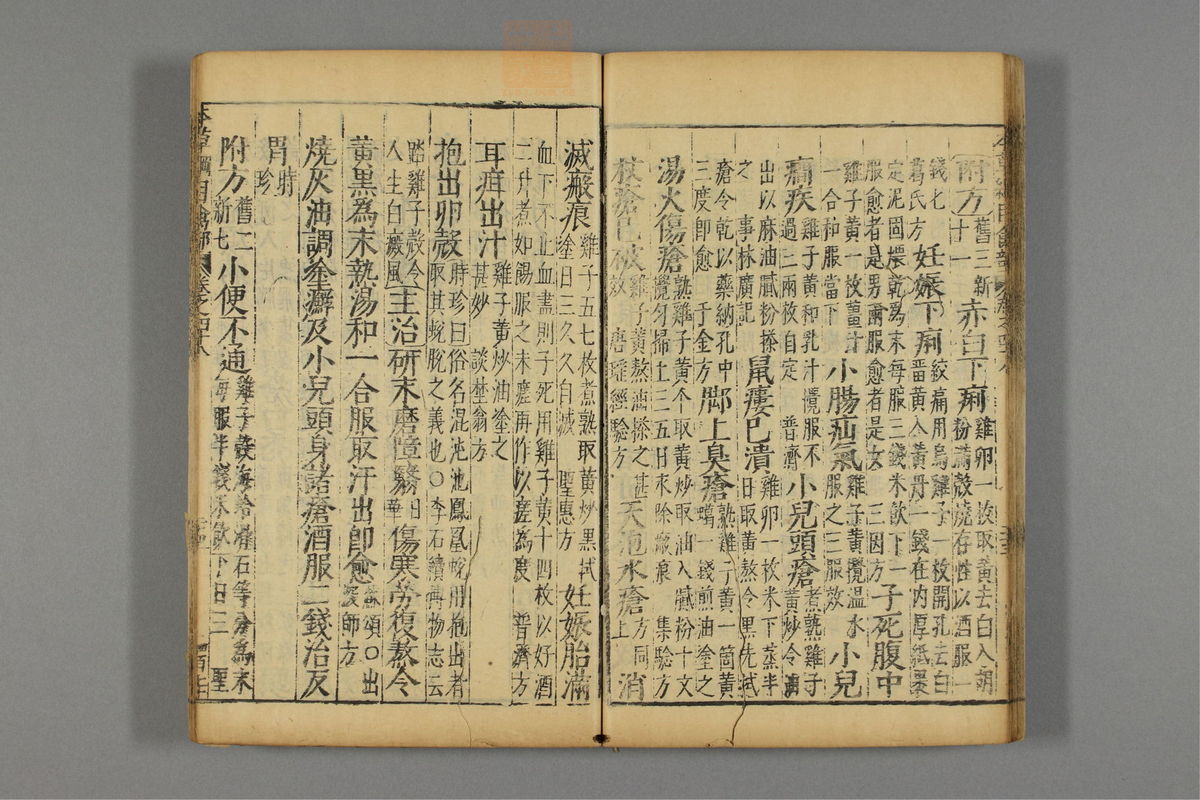 附方舊三新十一赤白下痢雞卵一枚取黃去白入胡粉滿殼燒存性以酒服一
錢七葛氏方妊娠下痢絞痛用烏雞子一枚開孔去白留黃入黃丹一錢在內厚紙裹
定泥固煨乾為末每服三錢米飲下一服愈者是男兩服愈者是女三因方子死腹中
雞子黃一枚薑汁一合和服當下小腸疝氣雞子黃攪溫水服之三服效小兒
癇疾雞子黃和乳汁攪服不過三兩枚自定普濟小兒頭瘡煮熟雞子黃炒令油
出以麻油膩粉搽之事林廣記鼠瘻已潰雞卵一枚米下蒸半日取黃熬令黑先拭
瘡令乾以藥納孔中三度即愈千金方腳上臭瘡熟雞子黃一箇黃蠟一錢煎油塗之
湯火傷瘡熟雞子黃个取黃炒取油入膩粉十文攪勻掃上三五日永除瘢痕集驗方
杖瘡已破雞子黃熬油搽之甚效唐瑤經驗方天泡水瘡方同上消
滅瘢痕雞子五七枚煮熟取黃炒黑拭塗日三久久自滅聖惠方妊娠胎滿
血下不止血盡則子死用雞子黃十四枚以好酒二升煮如餳服之未瘥再作以瘥為度普濟方
耳疳出汁雞子黃炒油塗之甚妙談埜翁方
抱出卵殼時珍曰俗名混沌池鳳凰蛻用抱出者取其蛻脫之義也○李石續博物志云
踏雞子殼令人生白癜風主治研末磨障翳日華傷寒勞復熬令
黃黑為末熱湯和一合服取汗出即愈蘇頌○出深師方
燒灰油調塗癬及小兒頭身諸瘡酒服二錢治反
胃時珍
附方舊二新七小便不通雞子殼海蛤滑石等分為末每服半錢米飲下日三聖
本草綱目禽部卷之四十八